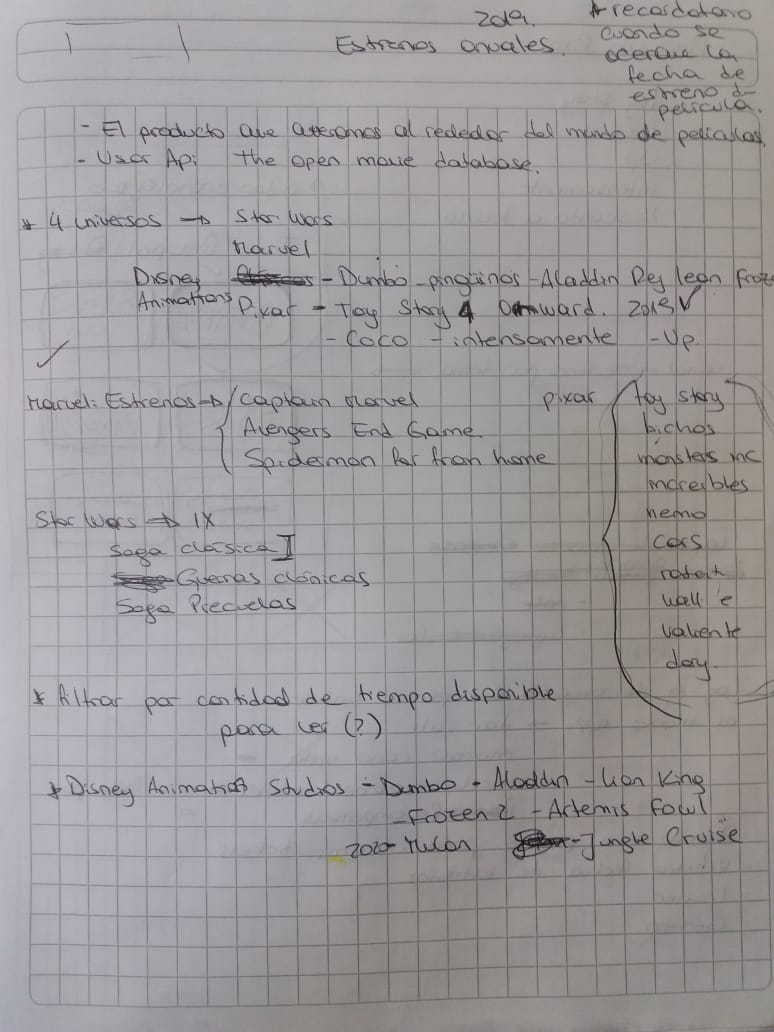 2019.
Estrenos anuales.
* recordatorio
cuando se
acerque la
fecha de
estreno d-
película.
- El producto que queremos al rededor del mundo de películas.
- Usar Api the open movie database.
* 4 universos → Star Wars
Marvel
Disney - Dumbo - pingüinos - Aladdin Rey leon Froze
Animations Pixar - Toy Story 4 Onward. 2019 √
- Coco - intensamente - Up
Marvel: Estrenos → Captain Marvel
Avengers End Game.
Spiderman far from home
pixar
toy story
bichos
monsters inc
increibles
nemo
cars
ratat
wall e
valiente
dory.
Star Wars → IX
Saga clásica I
Guerras clónicas
Saga Precuelas
* Filtrar por cantidad de tiempo disponible
para ver (?)
* Disney Animation Studios - Dumbo - Aladdin - Lion King
- Frozen 2 - Artemis Fowl
2020 - Mulan - Jungle Cruise